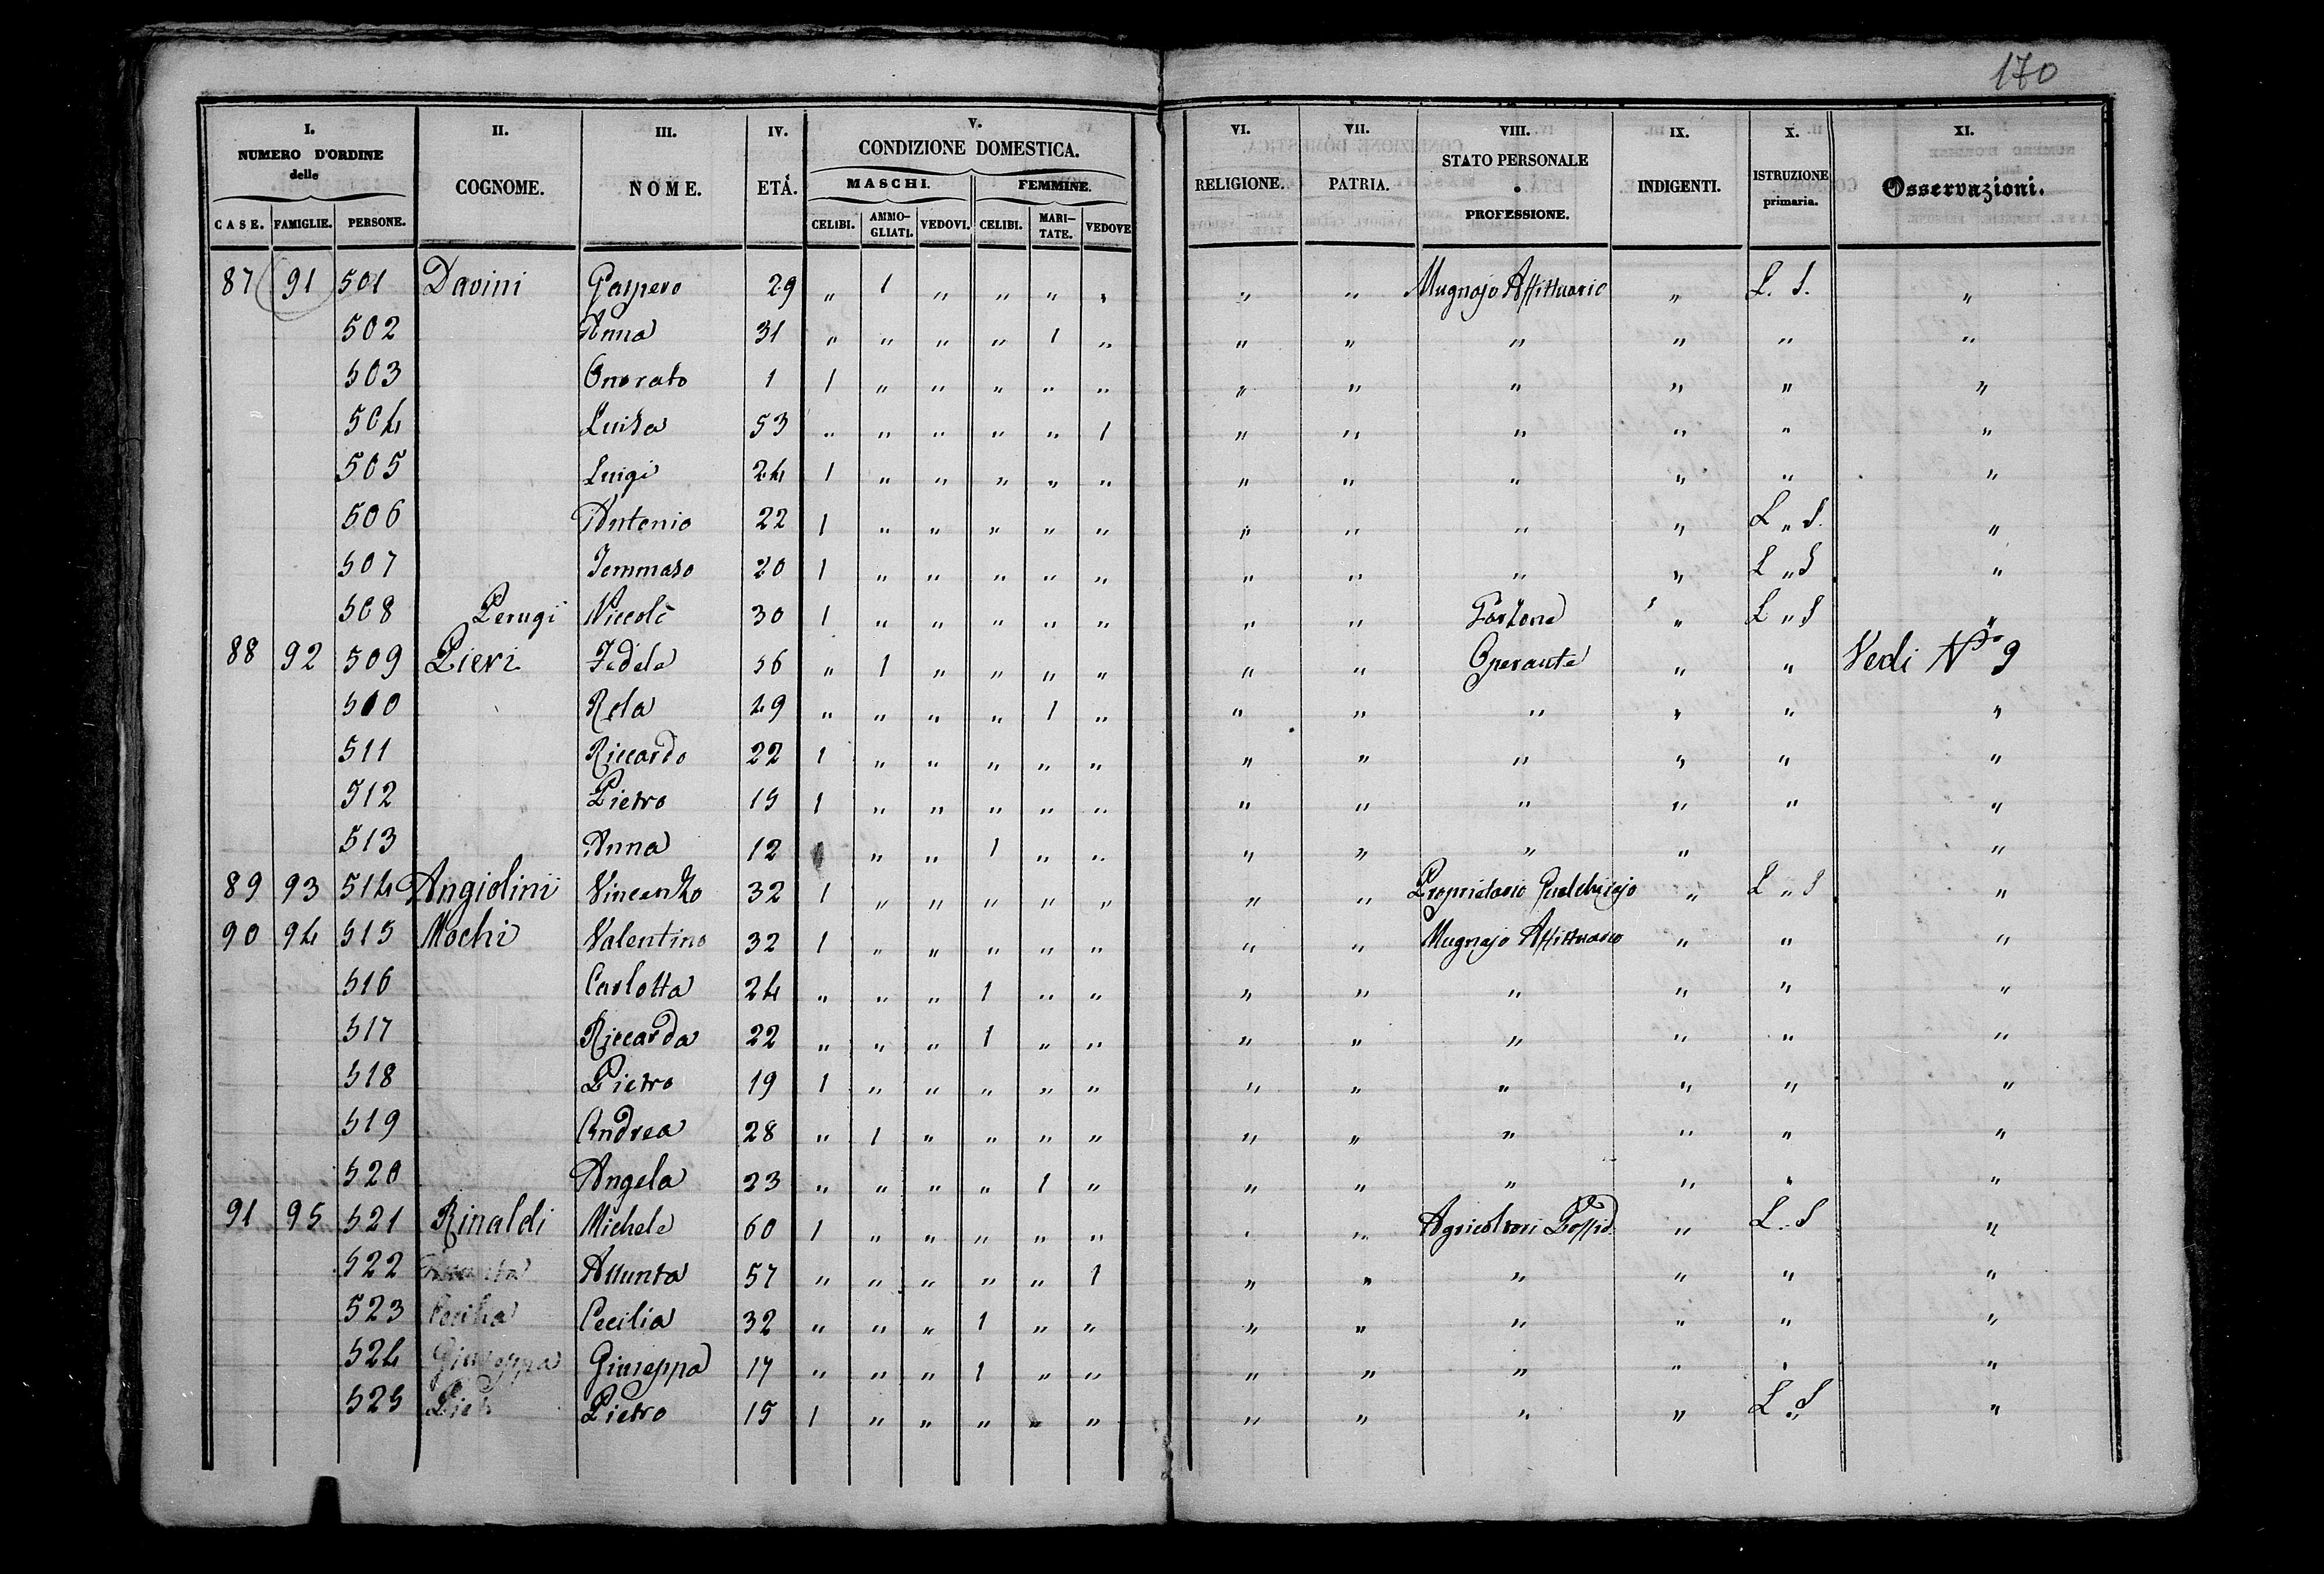 170
I. II. III. IV. V. VI. VII. VIII. IX. X. XI.
NUMERO D'ORDINE delle COGNOME. NOME. ETÁ. CONDIZIONE DOMESTICA. RELIGIONE. PATRIA. STATO PERSONALE • PROFESSIONE. INDIGENTI. ISTRUZIONE primaria. Osservazioni.
MASCHI. FEMMINE.
CASE. FAMIGLIE. PERSONE. CELIBI. AMMOGLIATI. VEDOVI. CELIBI. MARITATE. VEDOVE
87 91 501 Davini Gaspero 29 " 1 " " " " " " Mugnajo Affittuario " L. S. "
502 Anna 31 " " " " 1 " " " " " " "
503 Onorato 1 1 " " " " " " " " " " "
504 Luisa 53 " " " " " 1 " " " " " "
505 Luigi 24 1 " " " " " " " " " " "
506 Antonio 22 1 " " " " " " " " " L " S. "
507 Tommaso 20 1 " " " " " " " " " L " S "
508 Perugi Niccolò 30 1 " " " " " " " " L " S "
88 92 509 Pieri Fedele 56 " 1 " " " " " " Operante " " Vedi No 9
510 Rosa 49 " " " " 1 " " " " " " "
511 Riccardo 22 1 " " " " " " " " " " "
512 Pietro 15 1 " " " " " " " " " " "
513 Anna 12 " " 1 " " " " " " "
89 93 514 Angiolini Vincenzo 32 1 " " " " " " " Proprietario Gualchirajo " L " S "
90 94 515 Mochi Valentino 32 1 " " " " " " " Mugnajo Affittuario " " "
516 Carlotta 24 " " " 1 " " " " " " " "
517 Riccarda 22 " " " 1 " " " " " " " "
518 Pietro 19 1 " " " " " " " " " " "
519 Andrea 28 " 1 " " " " " " " " " "
520 Angela 23 " " " " 1 " " " " " " "
91 95 521 Rinaldi Michele 60 1 " " " " " " " Agricoltori Possid. " L " S "
522 Assunta 57 " " " " " 1 " " " " " "
523 Cecilia Cecilia 32 " " " 1 " " " " " " " "
524 Giuseppa Giuseppa 17 " " " 1 " " " " " " " "
525 Pietro 15 1 " " " " " " " " " L " S "